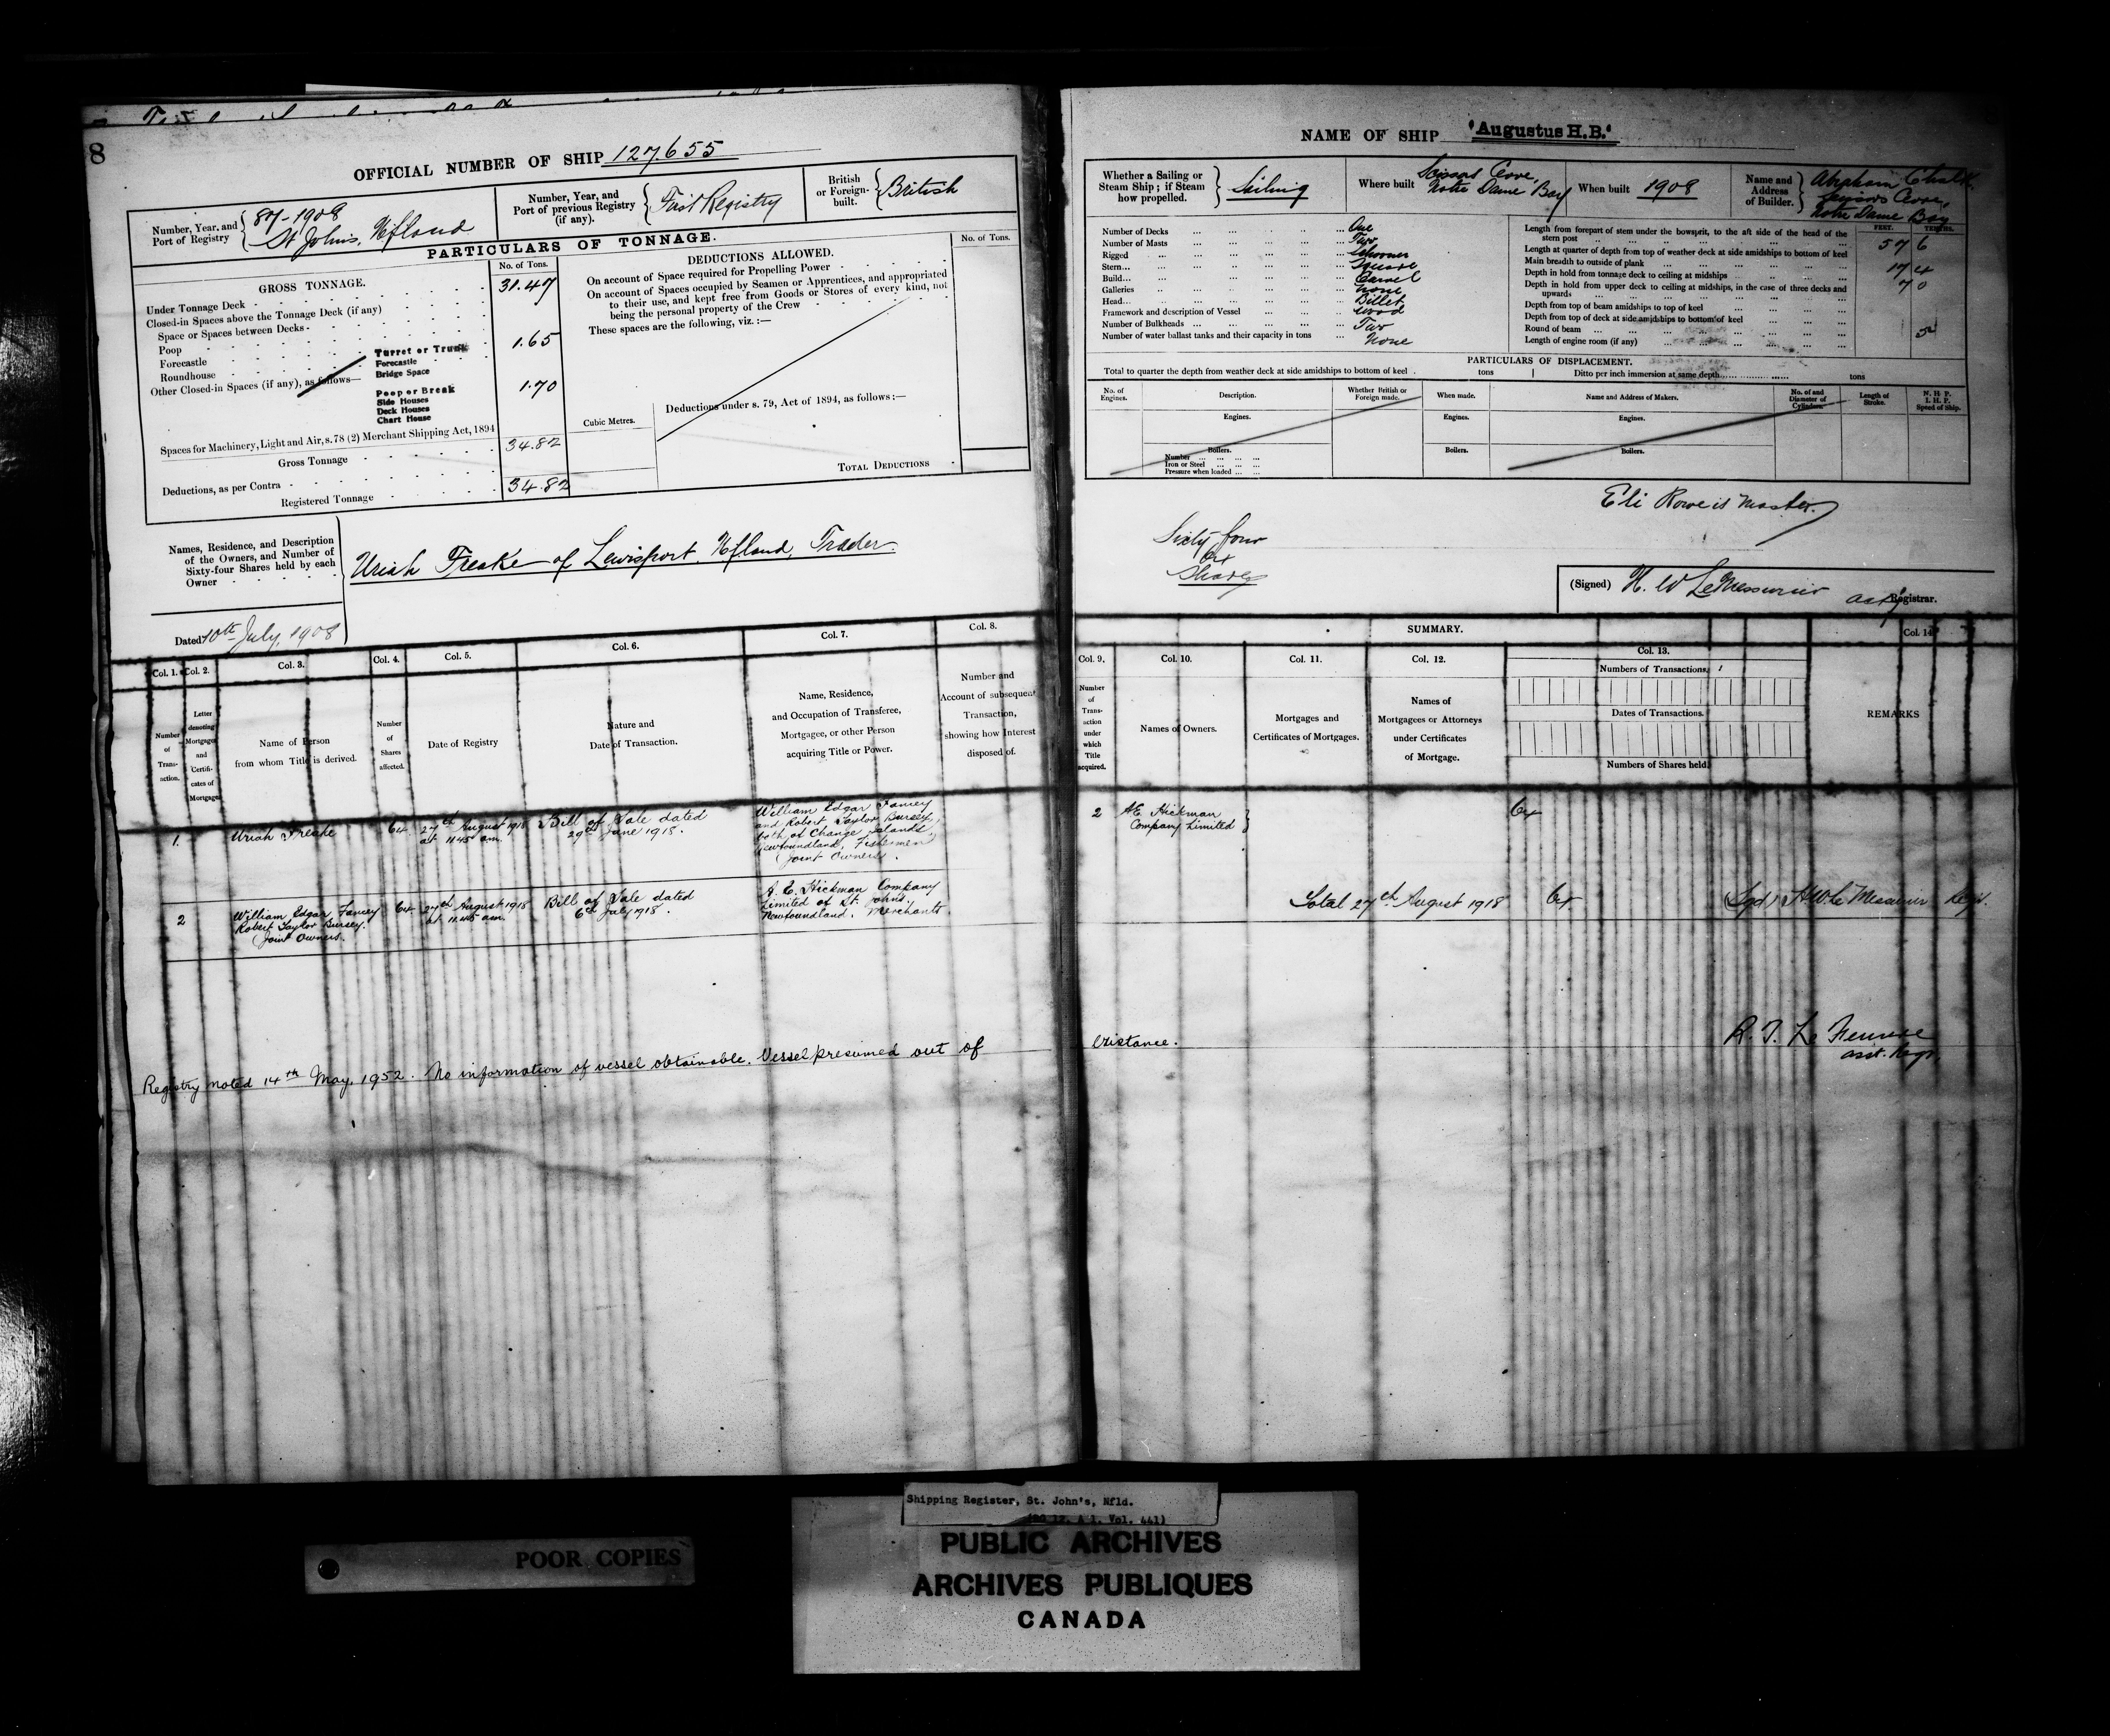 8
OFFICIAL NUMBER OF SHIP 127.655
Number, Year, and Port of Registry 87-1908 St Johns, Nfland
Number, Year, and Port of previous Registry (if any). First Registry
British or Foreign-built. British
PARTICULARS OF TONNAGE.
GROSS TONNAGE.
No. of Tons.
Under Tonnage Deck 31.47
Closed-in Spaces above the Tonnage Deck (if any)
Space or Spaces between Decks
Poop 1.65
Forecastle
Roundhouse
Other Closed-in Spaces (if any), as follows—
Turret or Trunk
Forecastle
Bridge Space
Poop or Break 1.70
Side Houses
Deck Houses
Chart House
Spaces for Machinery, Light and Air, s. 78 (2) Merchant Shipping Act, 1894
Gross Tonnage 34.82
Deductions, as per Contra
Registered Tonnage 34.82
DEDUCTIONS ALLOWED.
No. of Tons.
On account of Space required for Propelling Power
On account of Spaces occupied by Seamen or Apprentices, and appropriated
to their use, and kept free from Goods or Stores of every kind, not
being the personal property of the Crew
These spaces are the following, viz. :—
Cubic Metres.
Deductions under s. 79, Act of 1894, as follows :—
TOTAL DEDUCTIONS
Names, Residence, and Description
of the Owners, and Number of
Sixty-four Shares held by each
Owner
Uriah Freake of Lewisport, Nfland, Trader.
Dated 10th July, 1908
Col. 1. Col. 2. Col. 3. Col. 4. Col. 5. Col. 6. Col. 7. Col. 8.
Number of Transaction.
Letter denoting Mortgages and Certificates of Mortgage
Name of Person
from whom Title is derived.
Number of Shares affected.
Date of Registry
Nature and
Date of Transaction.
Name, Residence,
and Occupation of Transferee,
Mortgagee, or other Person
acquiring Title or Power.
Number and
Account of subsequent
Transaction,
showing how Interest
disposed of.
1. Uriah Freake 64 27th August 1918 at 11.45 am. Bill of Sale dated 29th June 1918.
William Edgar Fancey
and Robert Taylor Bursey,
both of Change Islands,
Newfoundland, Fishermen
Joint Owners.
2 William Edgar Fancey
Robert Taylor Bursey.
Joint Owners.
64 27th August 1918 at 11.45 am. Bill of Sale dated 6th July 1918.
A. E. Hickman Company
Limited of St. John's,
Newfoundland. Merchants.
Registry noted 14th May, 1952. No information of vessel obtainable. Vessel presumed out of
NAME OF SHIP 'Augustus H.B.'
Whether a Sailing or
Steam Ship ; if Steam
how propelled.
Sailing
Where built Scissors Cove, Notre Dame Bay
When built 1908
Name and
Address
of Builder.
Abraham
Scissors Cove,
Notre Dame Bay
Number of Decks One
Number of Masts Two
Rigged Schooner
Stern Square
Build Carvel
Galleries None
Head Billet
Framework and description of Vessel Wood
Number of Bulkheads Two
Number of water ballast tanks and their capacity in tons None
FEET. TENTHS.
Length from forepart of stem under the bowsprit, to the aft side of the head of the
stern post 57 6
Length at quarter of depth from top of weather deck at side amidships to bottom of keel
Main breadth to outside of plank 17 4
Depth in hold from tonnage deck to ceiling at midships 7 0
Depth in hold from upper deck to ceiling at midships, in the case of three decks and
upwards
Depth from top of beam amidships to top of keel
Depth from top of deck at side amidships to bottom of keel
Round of beam 5
Length of engine room (if any)
PARTICULARS OF DISPLACEMENT.
Total to quarter the depth from weather deck at side amidships to bottom of keel tons
Ditto per inch immersion at same depth tons
No. of Engines.
Description.
Whether British or Foreign made.
When made.
Name and Address of Makers.
No. of and Diameter of Cylinders.
Length of Stroke.
N. H. P.
I. H. P.
Speed of Ship.
Engines. Engines. Engines.
Boilers. Boilers. Boilers.
Number
Iron or Steel
Pressure when loaded
Eli Rowe is Master.
Sixty four
64
Shares
(Signed) H. W LeMessurier actg Registrar.
SUMMARY.
Col. 9. Col. 10. Col. 11. Col. 12. Col. 13. Col. 14
Number of Transaction under which Title acquired.
Names of Owners.
Mortgages and
Certificates of Mortgages.
Names of
Mortgagees or Attorneys
under Certificates
of Mortgage.
Numbers of Transactions.
Dates of Transactions.
Numbers of Shares held.
REMARKS
2 A E. Hickman
Company Limited
64
Total 27th August 1918 64 (Sgd) H W Le Messurier Regr.
existance.
asst. Regr.
Shipping Register, St. John's, Nfld.
(RG 12, A 1, Vol. 441)
POOR COPIES
PUBLIC ARCHIVES
ARCHIVES PUBLIQUES
CANADA